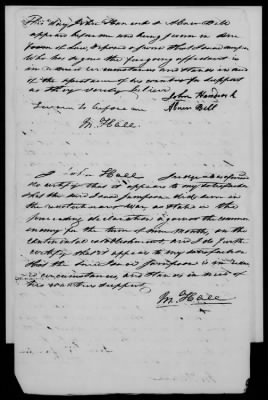 This day John Hancock & Abner Bell
appears before me and being sworn in due
form of Law depose & swear that Isaac
who has signed the foregoing affidavit is
in reduced circumstances and stands in need
of the assistance of his country for support
as they verily believe
John Hancock
Sworn to before me Abner Bell
M. Hall
I John Hall Judge as aforesaid
do certify that it appears to my satisfaction
that the said Isaac did serve in
the revolutionary war as stated in the
preceding declaration against the common
enemy for the term of nine months, on the
continental establishment, and I do further
certify that it appears to my satisfaction
that the said Isaac is in reduced
circumstances and stands in need of
his countrys support
M. Hall